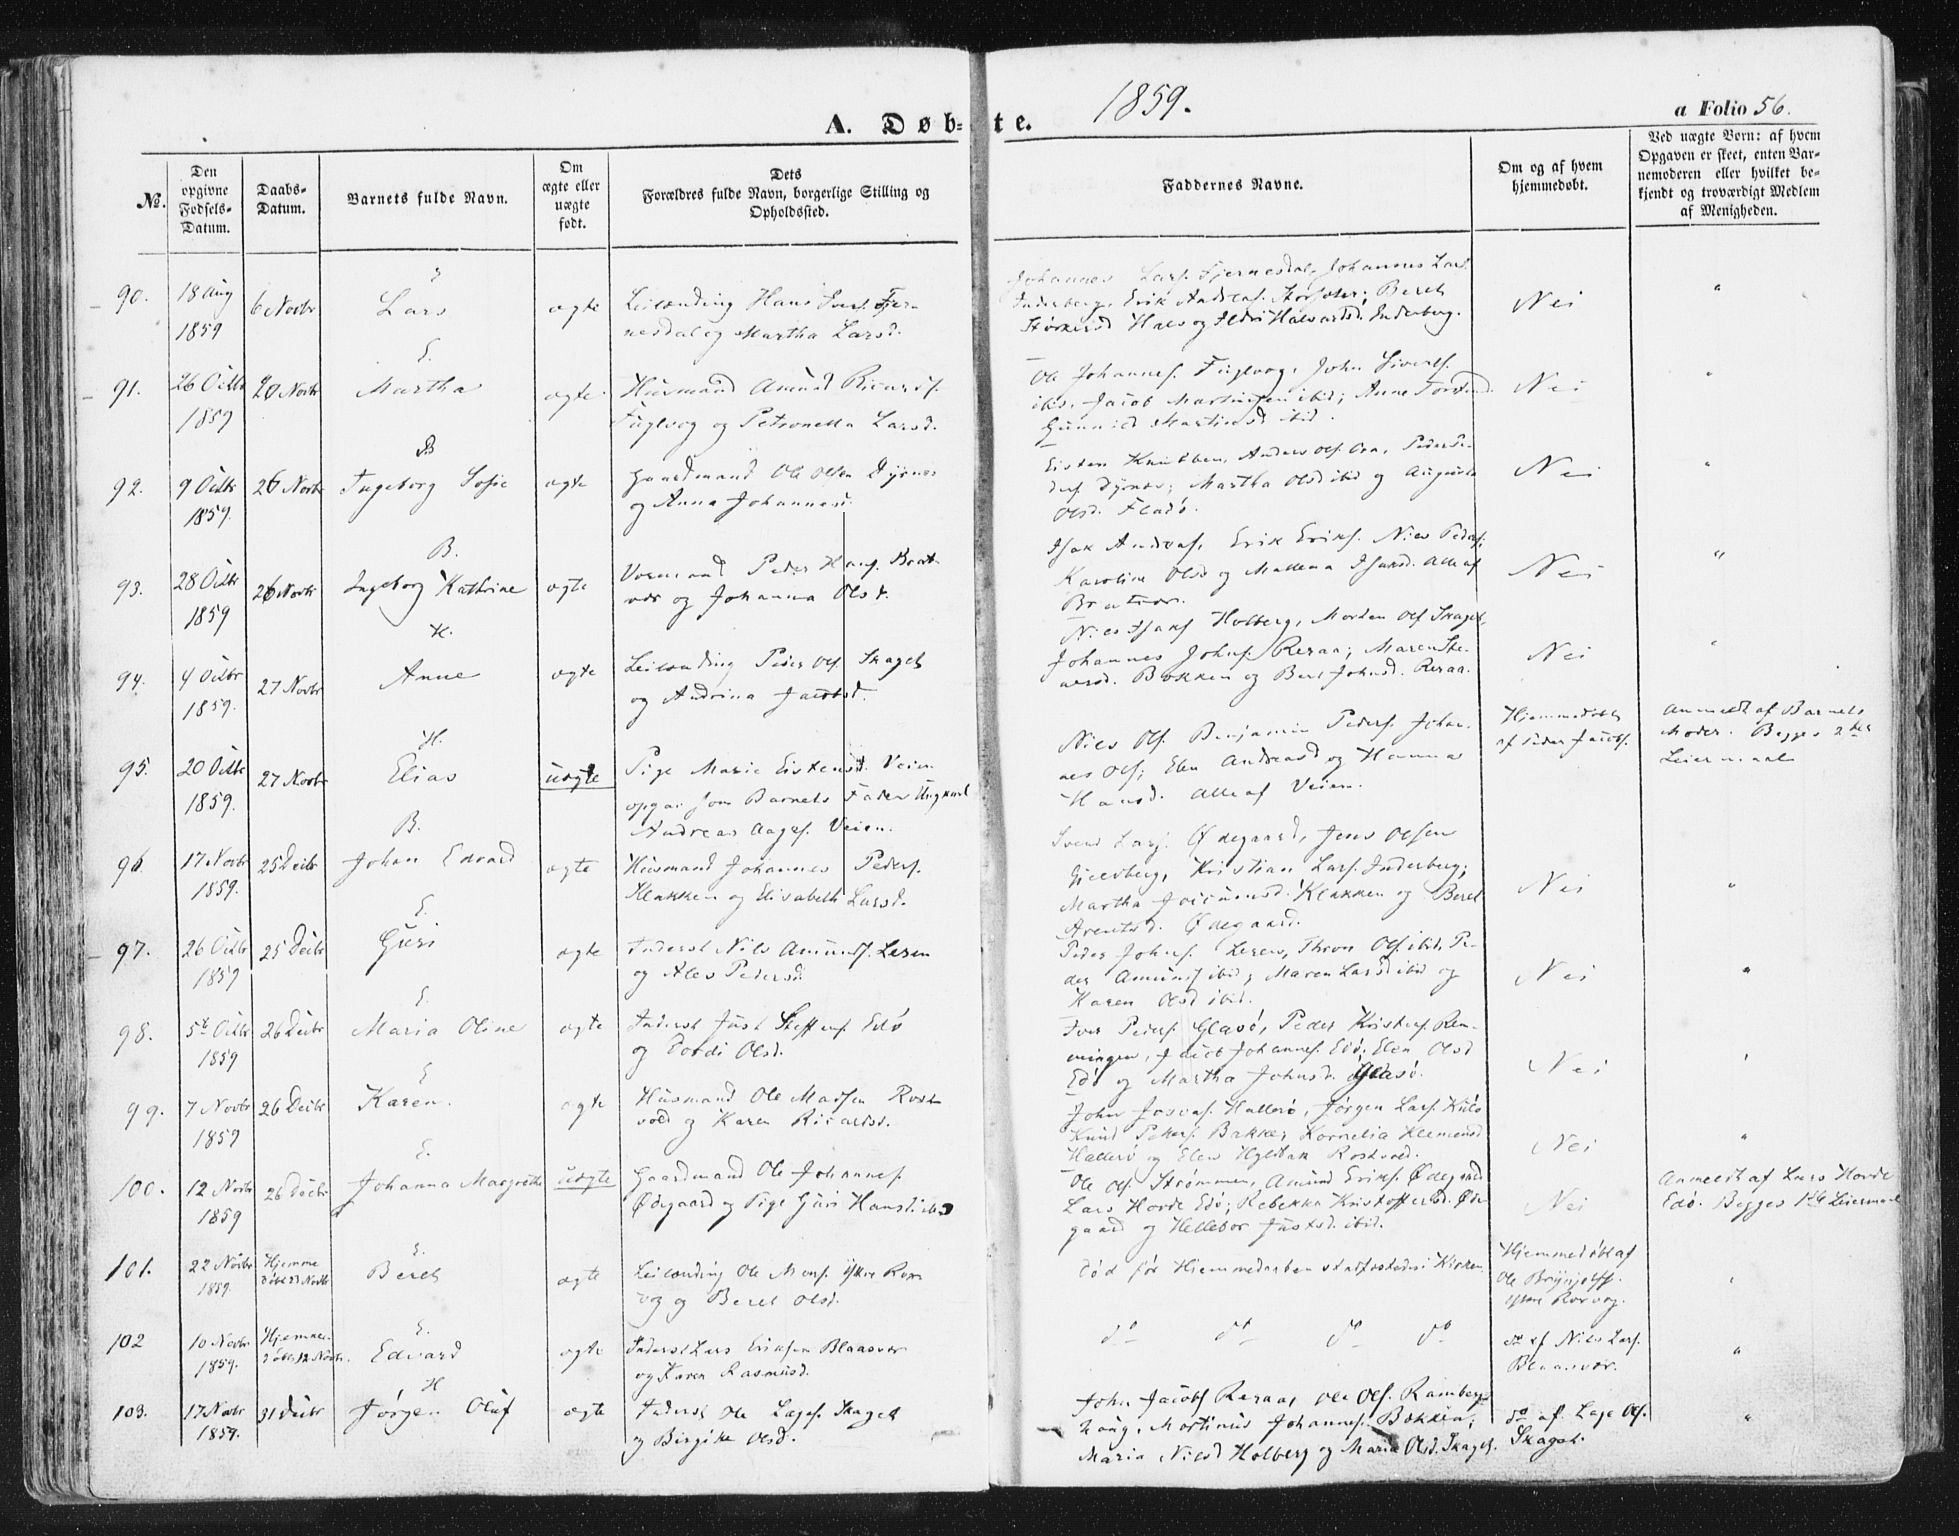 1859.
A. Døb- te.
a Folio 56.
№.
Den opgivne Fødsels-Datum.
Daabs-Datum.
Barnets fulde Navn.
Om ægte eller uægte født.
Dets Forældres fulde Navn, borgerlige Stilling og Opholdssted.
Faddernes Navne.
Om og af hvem hjemmedøbt.
Ved uægte Børn: af hvem Opgaven er skeet, enten Barnemoderen eller hvilket bekjendt og troværdigt Medlem af Menigheden.
90. 18 Aug 1859 6 Novbr E Lars ægte
Leilænding Hans Ivers. Fjernesdal og Martha Larsd.
Johannes Lars. Fjernesdal, Johannes Lars.
Inderberg, Erik Beret
Halsog Ildri Halvardsd. Inderberg.
Nei "
91. 26 Octbr 1859 20 Novbr E. Martha ægte
Husmand Amund Ricards.
Fuglvog og Petronella Larsd.
Ole Johannes. Fuglvog, John Siverts.
ibid. Jacob Martinsen ibid; Anne
Gunnild Martinsd ibid.
Nei "
92. 9 Octbr 1859. 26 Novbr B Ingeborg Sofie ægte
Gaardmand Ole Olsen Dyrnes
og Anna Johannesd.
Eisten Knubben, Anders Ols. Aan, Peder Pe-
ders. Dyrnes; Martha Olsd ibid og Augusta
Olsd. Fladø.
Nei "
93. 28 Octbr 1859 26 Novbr B. Ingeborg Kathrine ægte
Peder Hans. Brat-
vær og Johanna Olsd.
Isak Andreas. Erik Eriks. Nies Peders;
Karoline Olsd og Mallena Isaksd. Alle af
Bratvær.
Nei "
94. 4 Octbr 1859. 27 Novbr H. Anne ægte
Leilænding Peder Ols. Skaget
og Andrina Jacobsd.
Nies Isaks Holberg, Morten Ols Skaget,
Johannes Johns. Reraa; Maren
Bakken og Beret Johnsd. Reraa.
Nei "
95. 20 Octbr 1859. 27 Novbr H. Elias uægte
Pige Marie Eistensd. Veien
opgav som Barnets Fader Ungkarl
Andreas Aages. Veien.
Nies Ols. Benjamin Peders. Johan-
nes Ols; Elen Andreasd og Hanna
Hansd. Alle af Veien.
Hjemmedøbt
af Peder Jacobs.
Anmeldt af Barnets
Moder. Begges 2det
Leiermaal
96. 17 Novbr 1859. 25 Decbr B. Johan Edvard ægte
Husmand Johannes Peders.
Klakken og Elisabeth Larsd.
Svend Lars. Ødegaard, Jens Olsen
Kristian Lars. Inderberg;
Martha Klakken og Beret
Arentsd. Ødegaard.
Nei "
97. 26 Octbr 1859 25 Decbr E. Guri ægte
Inderst Nils Amunds. Leren
og Ales Pedersd.
Peder Johns. Leren, Thron Ols. ibid, Pe-
der Amunds ibid; Maren Larsd ibid og
Karen Olsd ibid.
Nei "
98. 5te Octbr 1859 26 Decbr E. Maria Oline ægte
Inderst Just Steffens. Edø
og Eordi Olsd.
Iver Peders. Glasø, Peder Kristens. Ren-
ningen, Jacob Johannes. Edø; Elen Olsd
Edø og Martha Johnsd. Glasø.
Nei
99. 7 Novbr 1859 26 Decbr E Karen. ægte
Husmand Ole Madsen Rost-
vold og Karen Ricardsd.
John Josvas. Hallerø, Jørgen Lars.
Knud Peders. Bakken Kornelia Klemensd
Hallerø og Elen Rostvold.
Nei "
100. 12 Novbr 1859 26 Decbr E. Johanna Margrethe uægte
Gaardmand Ole Johannes.
Ødegaard og Pige Guri Hansd. ibid
Ole Ols. Strømmen, Amund Eriks. Ødegaard
Lars Horde Edø; Rebekka Kristoffersd. Øde-
gaard og Hellebor Justsd. ibid.
Nei
Anmeldt af Lars Horde
Edø. Begges 1ste Leiermaal
101. 22 Novbr 1859. Hjemmedøbt Novbr E. Beret ægte
Leilænding Ole Mons. Yttre Ror-
vog og Beret Olsd.
Død før Hjemmedaaben stadfæstedes i Kirken.
Hjemmedøbt af
Ole Brynjolfs.
Yttre Rorvog.
102 10 Novbr 1859. Hjemmedøbt 12 Novbr. E. Edvard ægte
Inderst Lars Eriksen Blaasvær
og Karen Rasmusd.
do do do do
do af Niels Lars.
Blaasvær.
"
103. 17 Novbr 1859. 31 Decbr H Jørgen Oluf ægte
Inderst Ole Lages. Skaget
og Birgitte Olsd.
John Jacobs Reraa, Ole Ols. Ramberg-
haug, Martinus Johannes. Bakken;
Maria Nilsd Holberg og Maria Olsd. Skaget.
do af. Lage Ols.
Skaget.
"